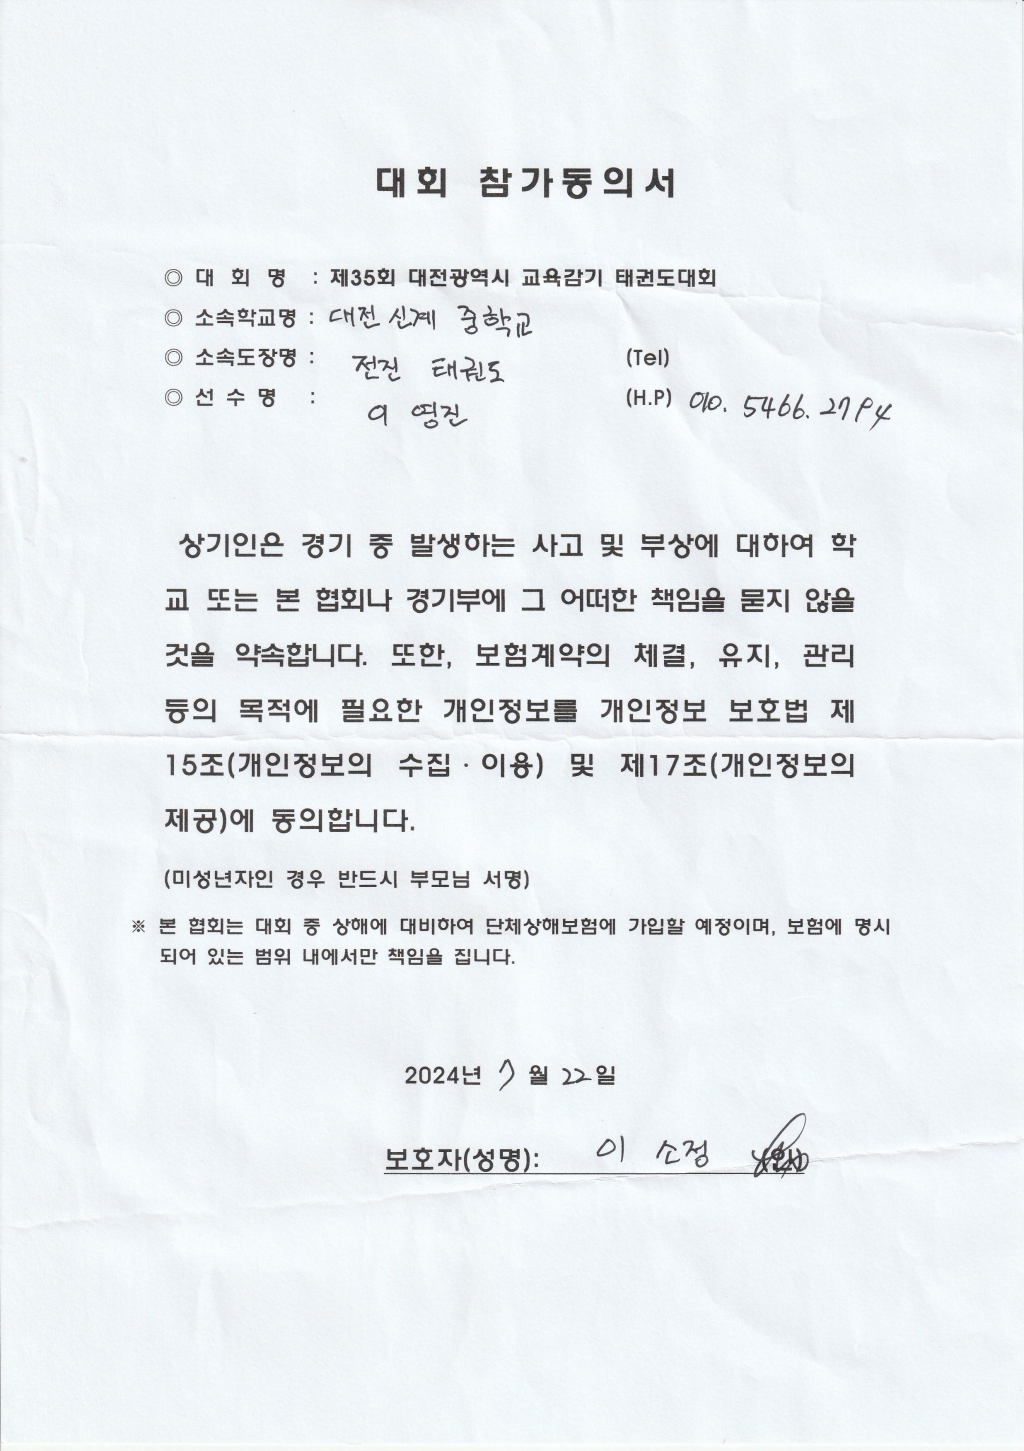 대회 참가동의서
◎ 대 회 명 : 제35회 대전광역시 교육감기 태권도대회
◎ 소속학교명 : 대전 신계 중학교
◎ 소속도장명 : 전진 태권도 (Tel)
◎ 선 수 명 : 이 영진 (H.P) 010. 5466. 2794
상기인은 경기 중 발생하는 사고 및 부상에 대하여 학
교 또는 본 협회나 경기부에 그 어떠한 책임을 묻지 않을
것을 약속합니다. 또한, 보험계약의 체결, 유지, 관리
등의 목적에 필요한 개인정보를 개인정보 보호법 제
15조(개인정보의 수집·이용) 및 제17조(개인정보의
제공)에 동의합니다.
(미성년자인 경우 반드시 부모님 서명)
※ 본 협회는 대회 중 상해에 대비하여 단체상해보험에 가입할 예정이며, 보험에 명시
되어 있는 범위 내에서만 책임을 집니다.
2024년 7월 22일
보호자(성명): 이 소정